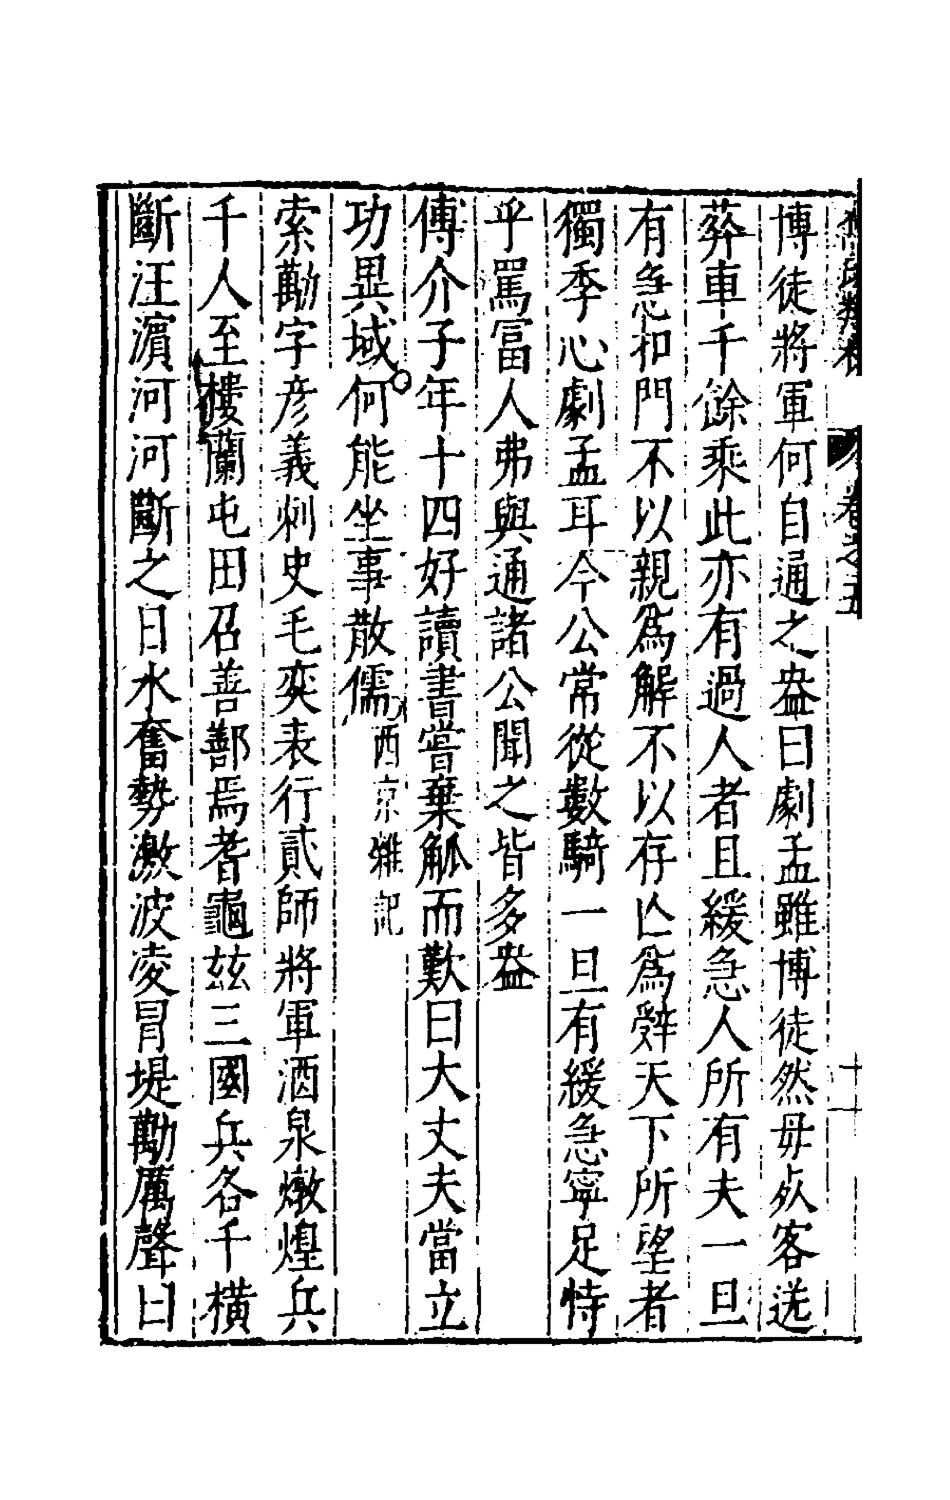 卷之五
博徒將軍何自通之盎曰劇孟雖博徒然母死客送
葬車千餘乘此亦有過人者且緩急人所有夫一旦
有急扣門不以親爲解不以存亾爲辤天下所望者
獨季心劇孟耳今公常從數騎一旦有緩急寧足恃
乎罵富人弗與通諸公聞之皆多盎
傅介子年十四好讀書嘗棄觚而歎曰大丈夫當立
功異域何能坐事散儒西京雜記
索勱字彦義刺史毛奕表行貳師將軍酒泉燉煌兵
千人至樓蘭屯田召善鄯焉耆龜茲三國兵各千橫
斷汪濵河河斷之日水奮勢激波凌冒堤勱厲聲曰